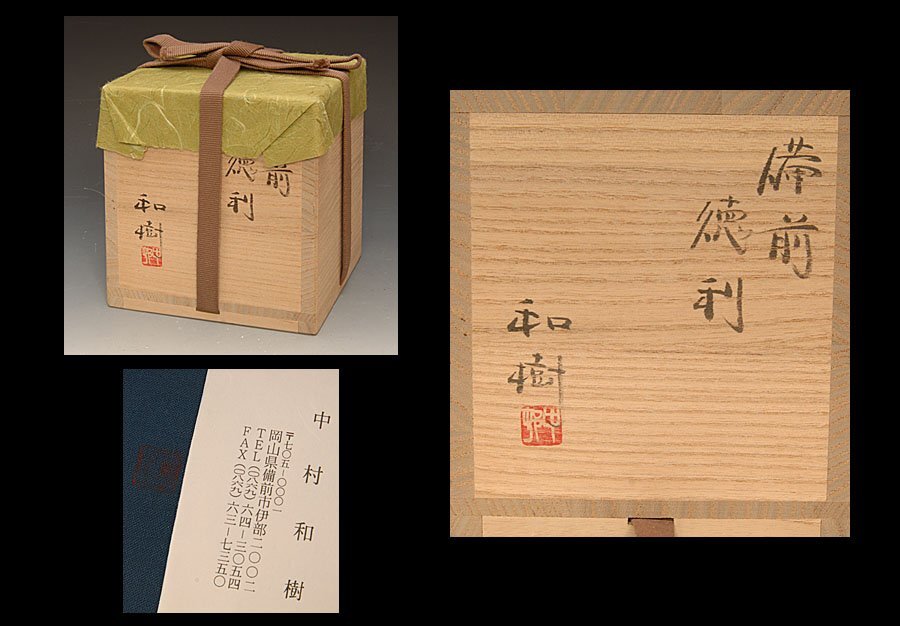 前
徳利
和樹
備前
徳利
和樹
中村和樹
〒七〇五-〇〇〇一
岡山県備前市伊部二〇〇二
TEL(〇八六九)六四-三〇五四
FAX(〇八六九)六三-七三五〇